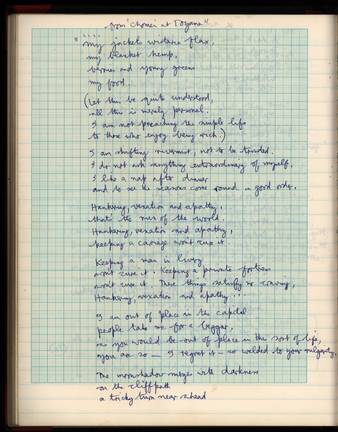 from "Chomei at Toyama"
"....
my jacket's wistaria flax,
my blanket hemp,
berries and young greens
my food.
(Let this be quite understood,
all this is merely personal.
I am not preaching the simple life
to those who enjoy being rich.)
I am shifting rivermist, not to be trusted.
I do not ask anything extraordinary of myself.
I like a nap after dinner
and to see the seasons come round in good order.
Hankering, vexation and apathy,
that's the run of the world.
Hankering, vexation and apathy,
keeping a carriage wont cure it.
Keeping a man in livery
wont cure it. Keeping a private fortress
wont cure it. These things satisfy no craving,
Hankering, vexation and apathy ...
I am out of place in the capital
people take me for a beggar,
as you would be out of place in this sort of life,
you are so — I regret it — so welded to your vulgarity.
The moonshadow merges with darkness
on the cliffpath
a tricky turn near ahead